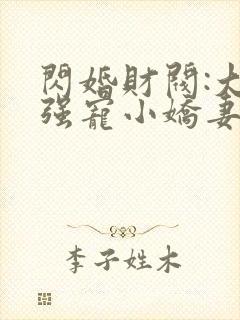 閃婚財閥:大
强寵小嬌妻
李子姓木